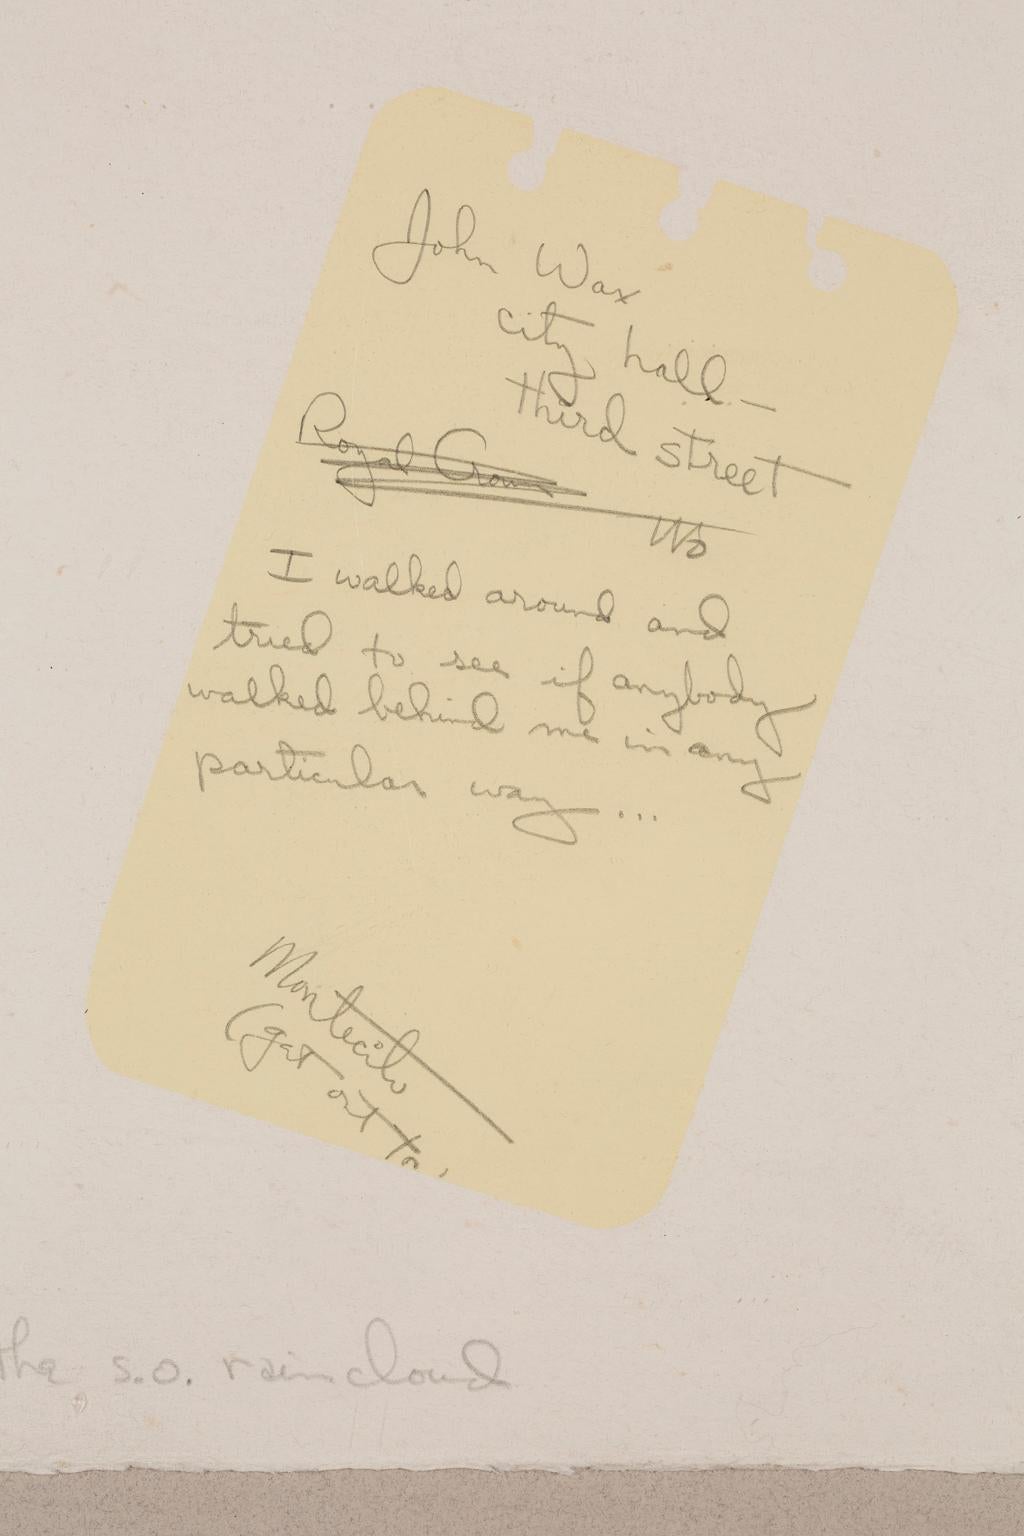 John Wax
city hall —
third street
Royal Crown
I walked around and
tried to see if anybody
walked behind me in any
particular way ...
Montecito
(get out to
the s.o. raincloud